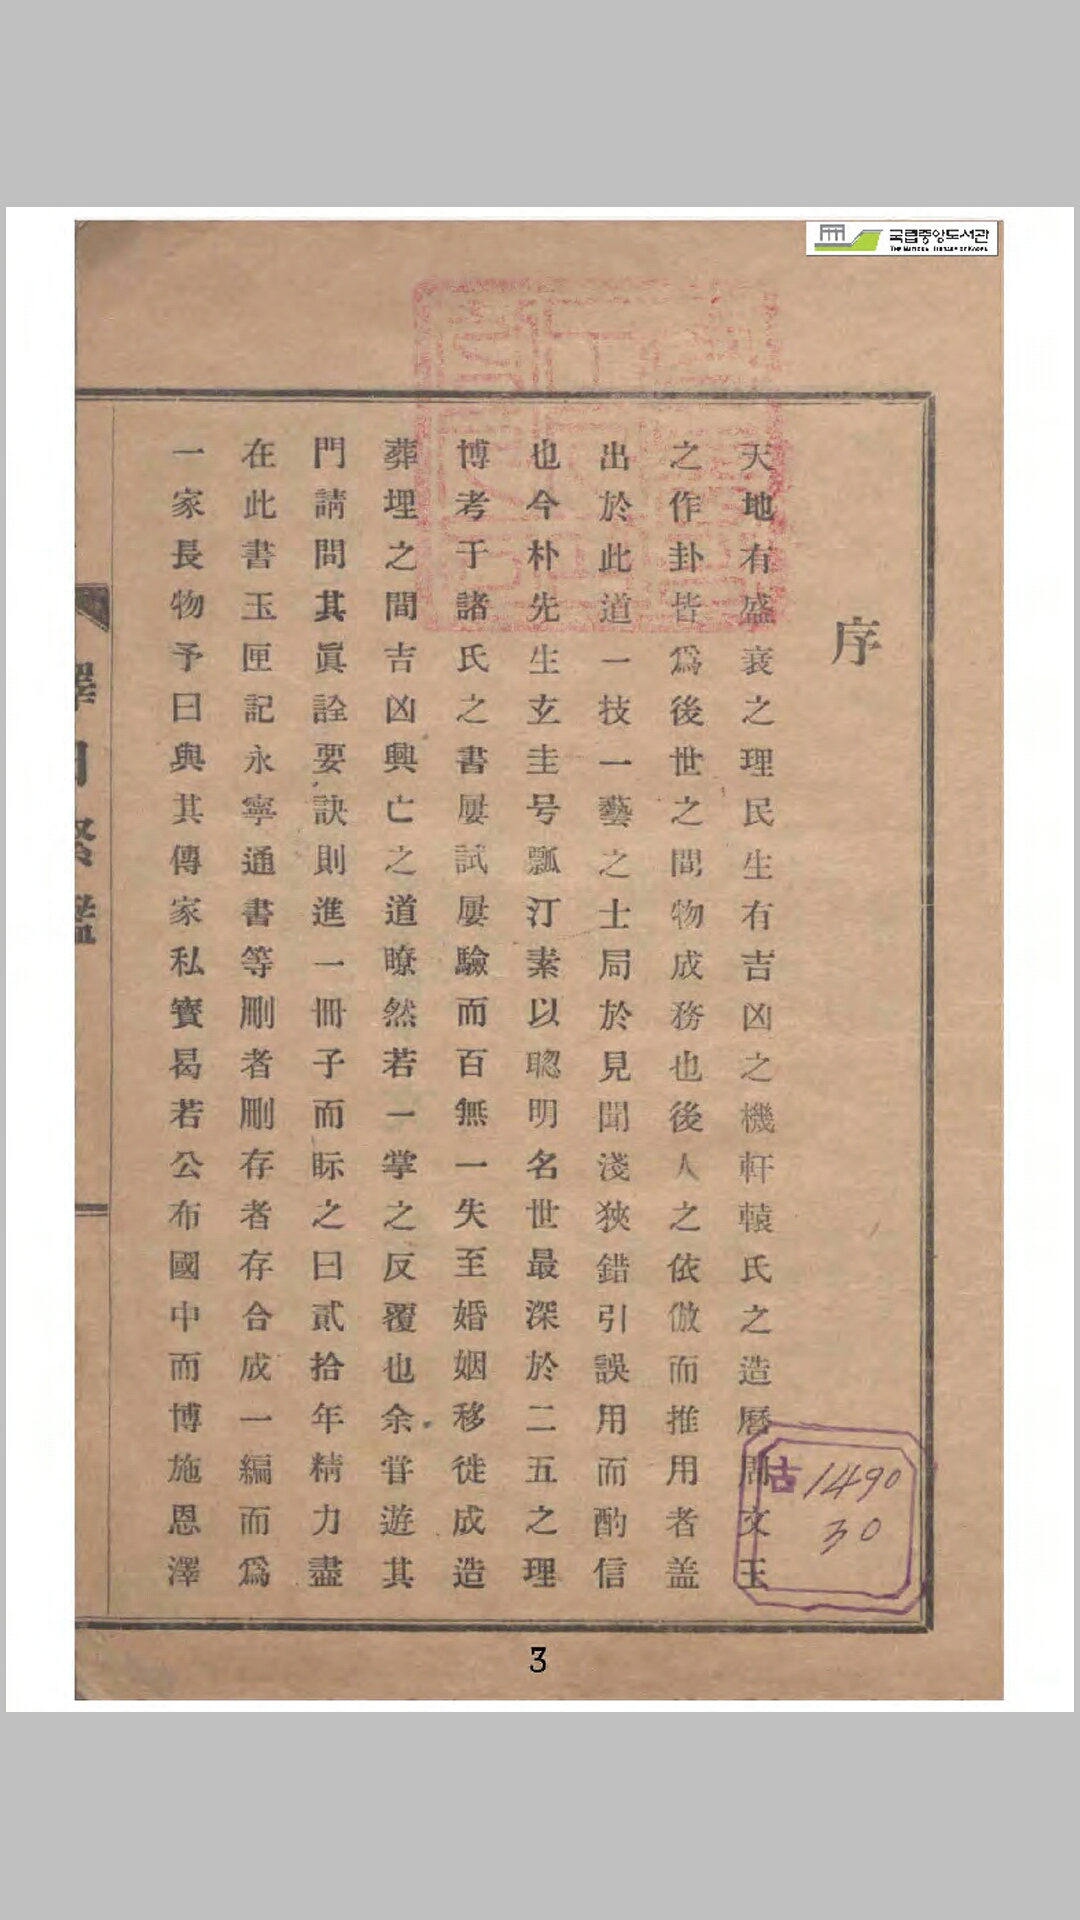 국립중앙도서관
THE NATIONAL LIBRARY OF KOREA
序
天地有盛衰之理民生有吉凶之機軒轅氏之造曆周文王
之作卦皆爲後世之間物成務也後人之依倣而推用者盖
出於此道一技一藝之士局於見聞淺狹錯引誤用而酌信
也今朴先生玄圭号瓢汀素以聰明名世最深於二五之理
博考于諸氏之書屢試屢驗而百無一失至婚姻移徙成造
葬埋之間吉凶興亡之道瞭然若一掌之反覆也余甞遊其
門請問其眞詮要訣則進一冊子而眎之曰貳拾年精力盡
在此書玉匣記永寧通書等刪者刪存者存合成一編而爲
一家長物予曰與其傳家私寶曷若公布國中而博施恩澤
古 1490
30
3